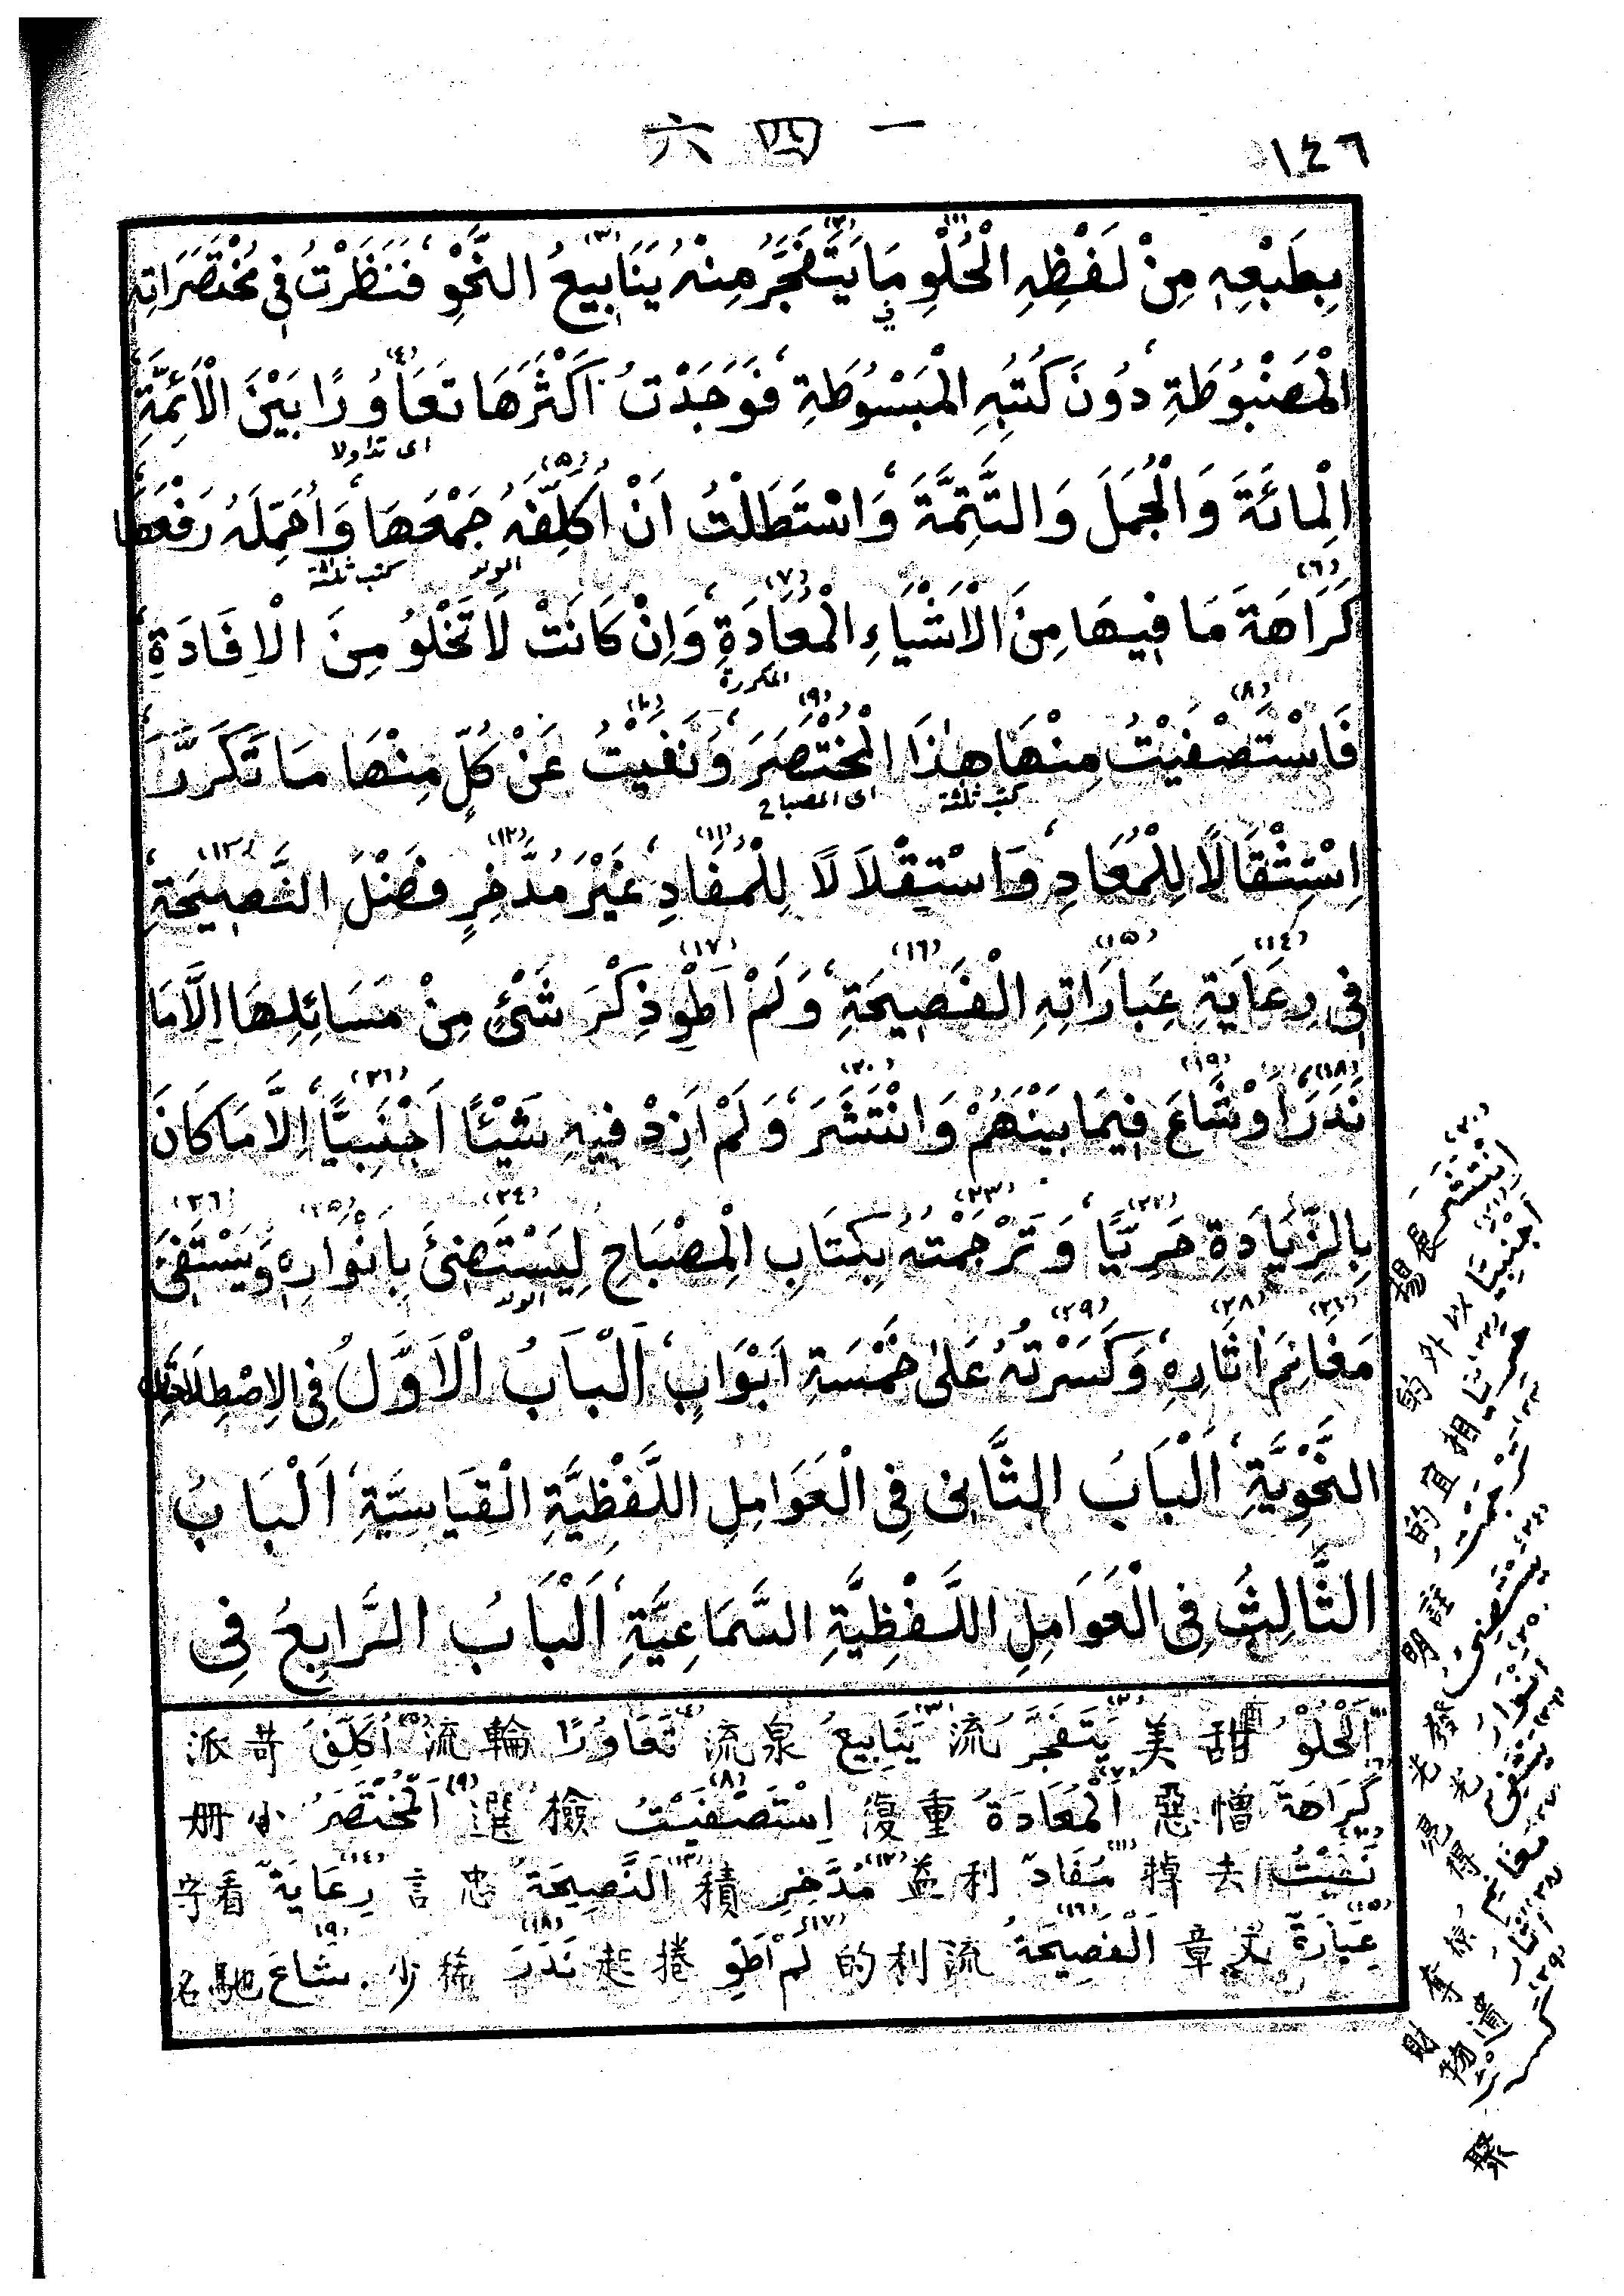 一四六
١٤٦
بِطَبْعِهٖ مِنْ لَفْظِهِ الْحُلْوِ مَا يَتَفَجَّرُ مِنْهُ يَنَابِيعُ النَّحْوِ فَنَظَرْتُ فِي مُخْتَصَرَاتِهِ
الْمَضْبُوطَةِ دُونَ كُتُبِهِ الْمَبْسُوطَةِ فَوَجَدْتُ اَكْثَرَهَا تَعَاوُرًا بَيْنَ الْاَئِمَّةِ
اى تداولا
الْمِائَةَ وَالْجُمَلَ وَالتَّتِمَّةَ وَاسْتَطَلْتُ اَنْ اُكَلِّفَهُ جَمْعَهَا وَاُحَمِّلَهُ رَفْعَهَا
الولد كتب ثلثة
كَرَاهَةَ مَا فِيهَا مِنَ الْاَشْيَاءِ الْمُعَادَةِ وَاِنْ كَانَتْ لَا تَخْلُو مِنَ الْاِفَادَةِ
المكررة
فَاسْتَصْفَيْتُ مِنْهَا هٰذَا الْمُخْتَصَرَ وَنَفَيْتُ عَنْ كُلٍّ مِنْهَا مَا تَكَرَّرَ
كتب ثلثة اى المصباح
اِسْتِثْقَالًا لِلْمُعَادِ وَاسْتِقْلَالًا لِلْمُفَادِ غَيْرَ مُدَّخِرٍ فَضْلَ النَّصِيحَةِ
فِي رِعَايَةِ عِبَارَاتِهِ الْفَصِيحَةِ وَلَمْ اَطْوِ ذِكْرَ شَئٍْ مِنْ مَسَائِلِهَا اِلَّا مَا
نَدَرَ اَوْ شَاعَ فِيمَا بَيْنَهُمْ وَانْتَشَرَ وَلَمْ اَزِدْ فِيهِ شَيْئًا اَجْنَبِيًّا اِلَّا مَا كَانَ
بِالزِّيَادَةِ حَرِيًّا وَتَرْجَمْتُهُ بِكِتَابِ الْمِصْبَاحِ لِيَسْتَضِئَ بِاَنْوَارِهٖ وَيَسْتَفِئَ
الولد
مَغَانِمَ اٰثَارِهٖ وَكَسَرْتُهُ عَلٰى خَمْسَةِ اَبْوَابٍ اَلْبَابُ الْاَوَّلُ فِى الْاِصْطِلَاحَاتِ
النَّحْوِيَّةِ اَلْبَابُ الثَّانِى فِى الْعَوَامِلِ اللَّفْظِيَّةِ الْقِيَاسِيَّةِ اَلْبَابُ
الثَّالِثُ فِى الْعَوَامِلِ اللَّفْظِيَّةِ السَّمَاعِيَّةِ اَلْبَابُ الرَّابِعُ فِى
اَلْحُلْوُ甜美 يَتَفَجَّرُ流 يَنَابِيعُ泉流 تَعَاوُرًا輪流 اُكَلِّفَ苛派
كَرَاهَةً憎惡 اَلْمُعَادَةُ重復 اِسْتَصْفَيْتُ檢選 اَلْمُخْتَصَرُ小册
نَفَيْتُ去掉 مُفَاد利益 مُدَّخِرٍ積 اَلنَّصِيحَةُ忠言 رِعَايَةً看守
عِبَارَةً文章 اَلْفَصِيحَةُ流利的 لَمْ اَطْوِ捲起 نَدَرَ稀少 شَاعَ馳名
(٢٠) اِنْتَشَرَ 展揚
(٢١) اَجْنَبِيًّا 以外的
(٢٢) حَرِيًّا 相宜的
(٢٣) تَرْجَمْتُ 註明
(٢٤) يَسْتَضِئُ 發光
(٢٥) اَنْوَار 光
(٢٦) يَسْتَفِئُ 覓得
(٢٧) مَغَانِم 奪財物
(٢٨) اٰثَار 遺
(٢٩) كَسَرْتُ